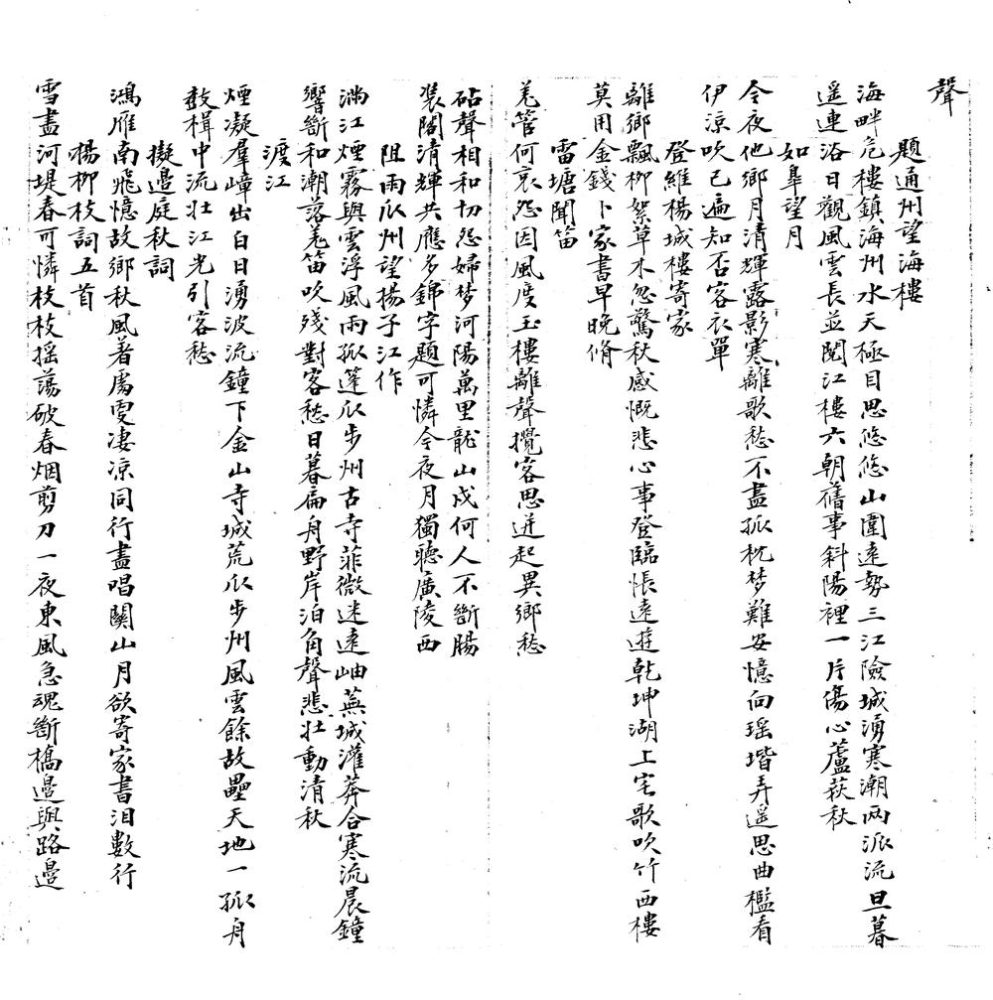 聲
題通州望海樓
海畔危樓鎮海州水天極目思悠悠山圍遠勢三江險城湧寒潮兩派流旦暮
遥連浴日觀風雲長並閱江樓六朝舊事斜陽裡一片傷心蘆荻秋
如臯望月
今夜他鄉月清輝露影寒離歌愁不盡孤枕梦難安憶向瑶堦弄遥思曲檻看
伊涼吹已遍知否客衣單
登維楊城樓寄家
離鄉飄柳絮草木忽驚秋感慨悲心事登臨悵遠遊乾坤湖上宅歌吹竹西樓
莫用金錢卜家書早晚脩
雷塘聞笛
羌管何哀怨因風度玉樓離聲攪客思迸起異鄉愁
砧聲相和切怨婦梦河陽萬里龍山戍何人不斷腸
裴閣清輝共應多錦字題可憐今夜月獨聽廣陵西
阻雨瓜州望揚子江作
滿江煙霧與雲浮風雨孤篷瓜步州古寺菲微迷遠岫蕪城灌莽合寒流晨鐘
響斷和潮落羌笛吹殘對客愁日暮扁舟野岸泊角聲悲壯動清秋
渡江
煙凝羣嶂出白日湧波流鐘下金山寺城荒瓜步州風雲餘故壘天地一孤舟
鼓楫中流壯江光引客愁
擬邉庭秋詞
鴻雁南飛憶故鄉秋風着處雯凄凉同行盡唱關山月欲寄家書淚數行
楊柳枝詞五首
雪盡河堤春可憐枝枝揺蕩破春烟剪刀一夜東風急魂斷橋邉與路邉